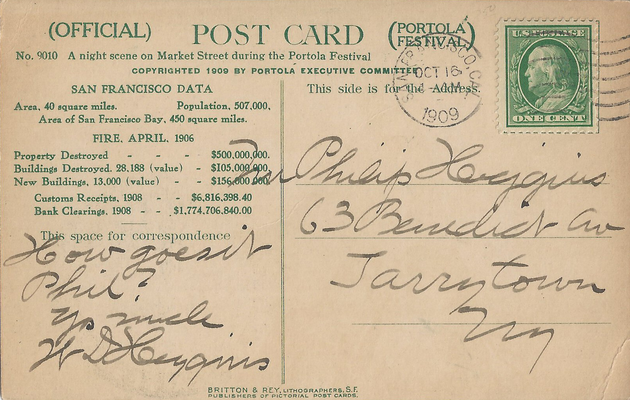 (OFFICIAL) POST CARD (PORTOLA FESTIVAL)
No. 9010 A night scene on Market Street during the Portola Festival
COPYRIGHTED 1909 BY PORTOLA EXECUTIVE COMMITTEE
SAN FRANCISCO DATA
Area, 40 square miles. Population, 507,000,
Area of San Francisco Bay, 450 square miles.
FIRE, APRIL, 1906
Property Destroyed - - - $500,000,000.
Buildings Destroyed, 28,188 (value) - $105,000,000
New Buildings, 13,000 (value) - - $156,000,000
Customs Receipts, 1908 - - $6,816,398.40
Bank Clearings, 1908 - - $1,774,706,840.00
This space for correspondence
How goes it
Phil?
Yr uncle
W D Huggins
This side is for the Address.
SAN FRANCISCO, CAL.
OCT 16
AM
1909
U.S. POSTAGE
ONE CENT
Mr Philip Huggins
63 Benedict Av
Tarrytown
NY
BRITTON & REY, LITHOGRAPHERS, S.F.
PUBLISHERS OF PICTORIAL POST CARDS.